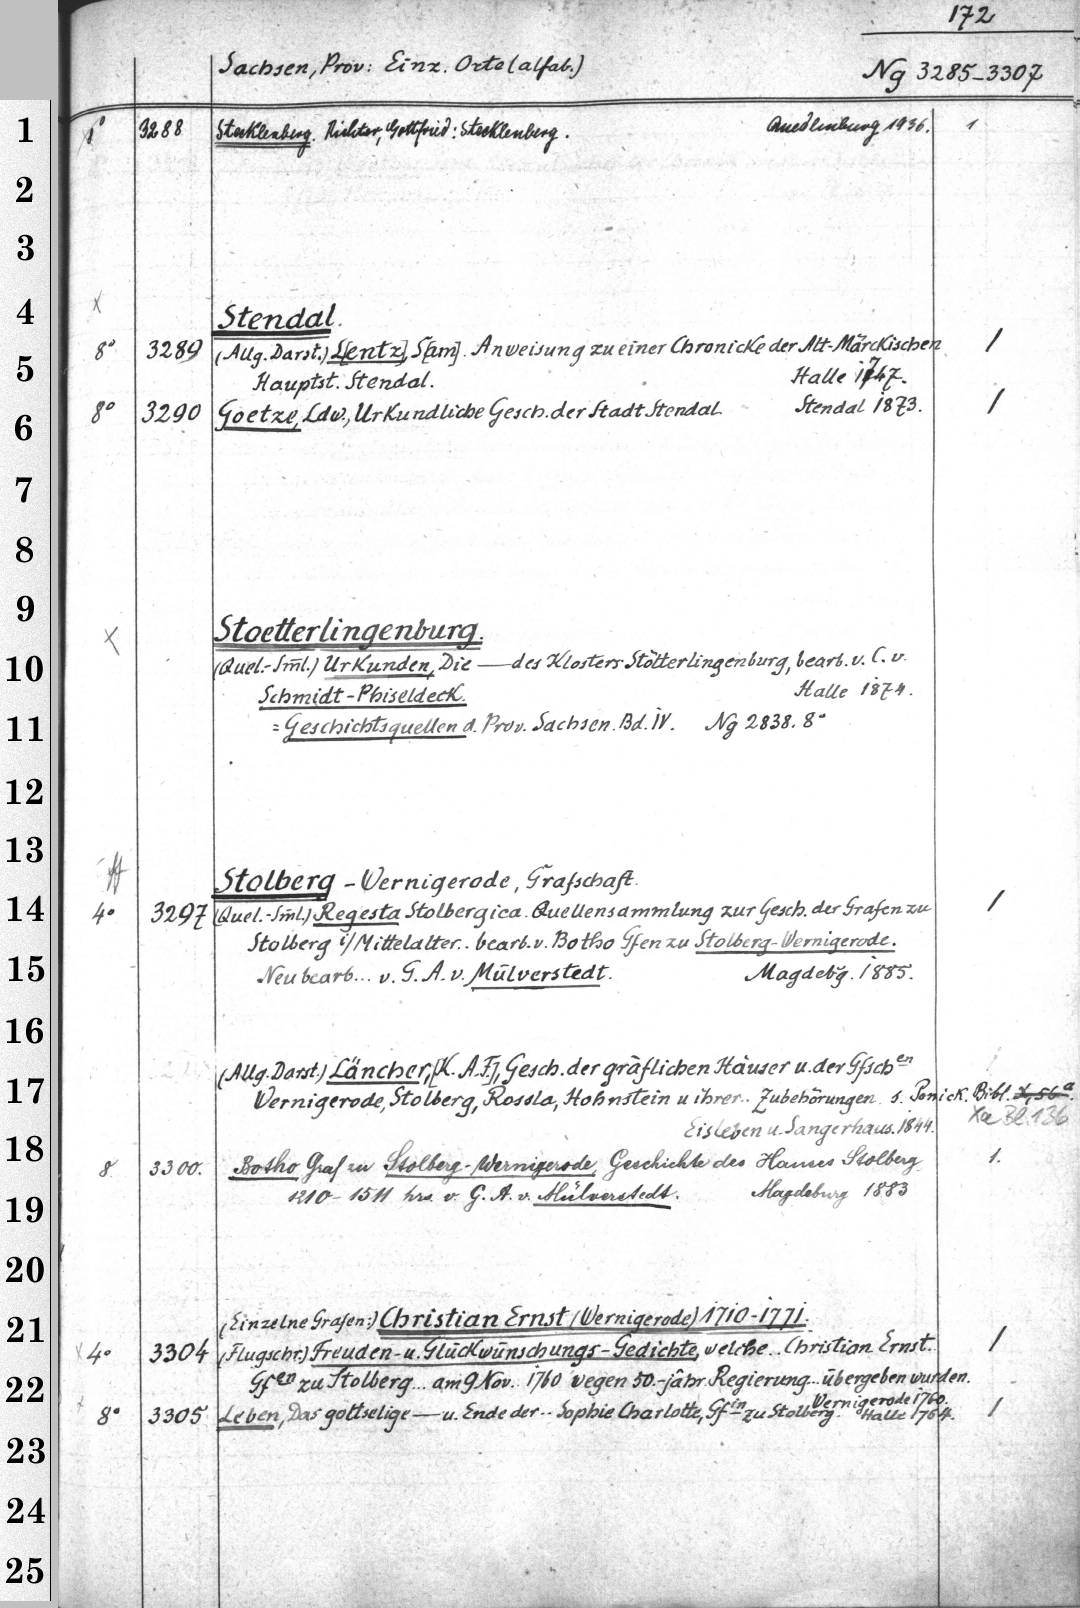 172
Sachsen, Prov: Einz. Orte (alfab.) Ng 3285-3307
1 8° 3288 Stecklenberg. Richter, Gottfried: Stecklenberg. Quedlinburg 1936. 1
2
3
4 x Stendal.
8° 3289 (Allg. Darst.) L[entz], S[am]. Anweisung zu einer Chronicke der Alt-Märckischen 1
5 Hauptst. Stendal. Halle 1747.
6 8° 3290 Goetze, Ldw., Urkundliche Gesch. der Stadt Stendal. Stendal 1873. 1
7
8
9 x Stoetterlingenburg.
10 (Quel.-Sml.) Urkunden, Die — des Klosters Stötterlingenburg, bearb. v. C. v.
Schmidt-Phiseldeck. Halle 1874.
11 = Geschichtsquellen d. Prov. Sachsen. Bd. IV. Ng 2838. 8°
12
13 Stolberg - Wernigerode, Grafschaft.
14 4° 3297 (Quel.-Sml.) Regesta Stolbergica. Quellensammlung zur Gesch. der Grafen zu 1
Stolberg i/Mittelalter.. bearb. v. Botho Gfen zu Stolberg-Wernigerode.
15 Neu bearb... v. G. A. v. Mülverstedt. Magdebg. 1885.
16
(Allg. Darst.) Läncher, [K. A. F.], Gesch. der gräflichen Häuser u. der Gfsch en
17 Wernigerode, Stolberg, Rossla, Hohnstein u ihrer.. Zubehörungen s. Ponick. Bibl. X, 56 a.
Eisleben u. Sangerhaus. 1844. Xa Bl. 136
18 8 3300. Botho Graf zu Stolberg-Wernigerode, Geschichte des Hauses Stolberg 1.
19 1210-1511 hrs v. G. A. v. Mülverstedt. Magdeburg 1883
20
(Einzelne Grafen:) Christian Ernst (Wernigerode) 1710-1771.
21 x 4° 3304 (Flugschr.) Freuden- u. Glückwünschungs-Gedichte, welche.. Christian Ernst.. 1
22 Gf en zu Stolberg... am 9 Nov.. 1760 wegen 50.-jähr. Regierung... übergeben wurden.
Wernigerode 1760.
8° 3305 Leben, Das gottselige — u. Ende der.. Sophie Charlotte, Gf in zu Stolberg. Halle 1764. 1
23
24
25